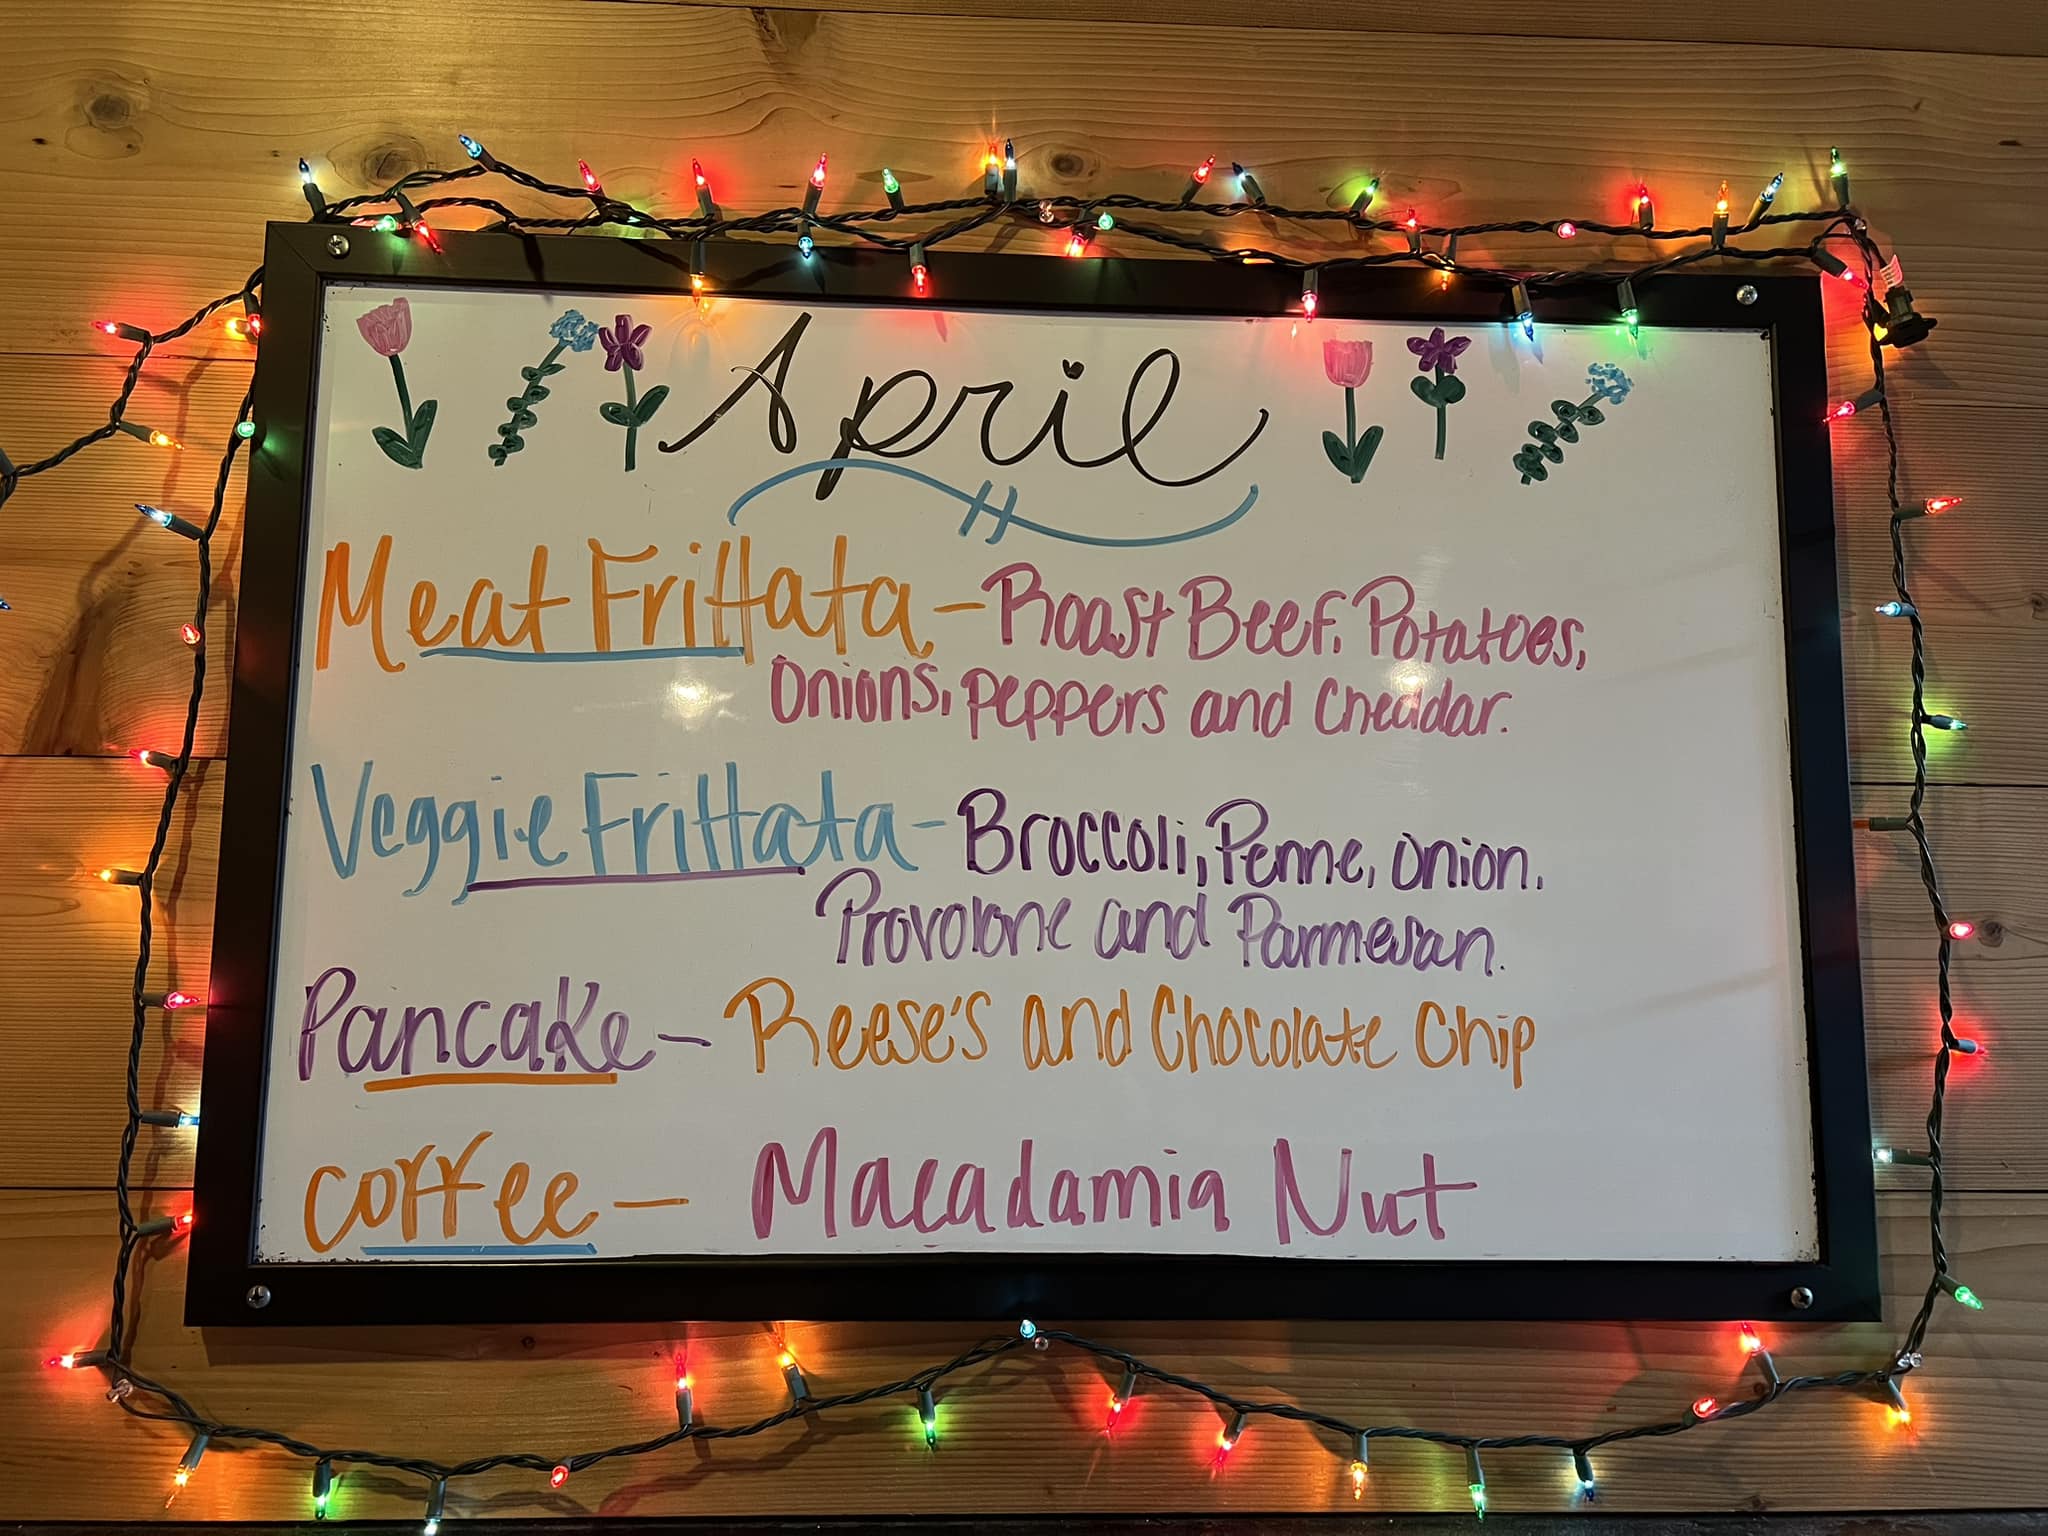 April
Meat Frittata - Roast Beef, Potatoes,
Onions, Peppers and Cheddar.
Veggie Frittata - Broccoli, Penne, Onion,
Provolone and Parmesan.
Pancake - Reese's and Chocolate Chip
Coffee - Macadamia Nut